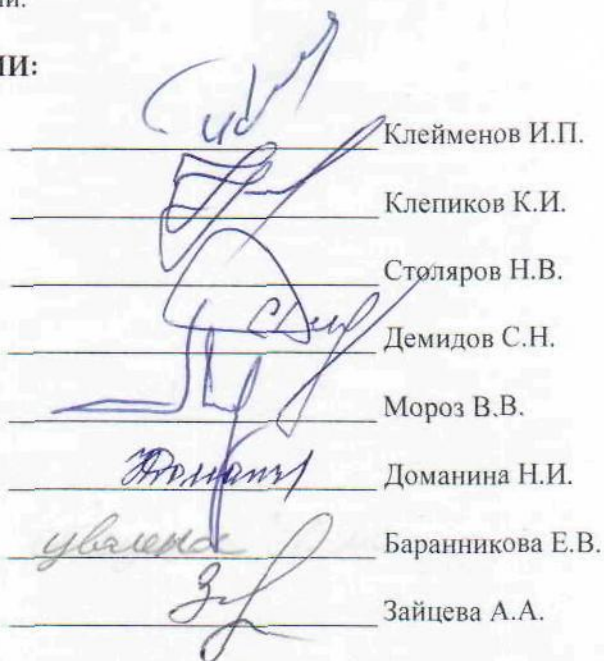 ии.
ИИ:
Клейменов И.П.
Клепиков К.И.
Столяров Н.В.
Демидов С.Н.
Мороз В.В.
Доманина Н.И.
уволена Баранникова Е.В.
Зайцева А.А.